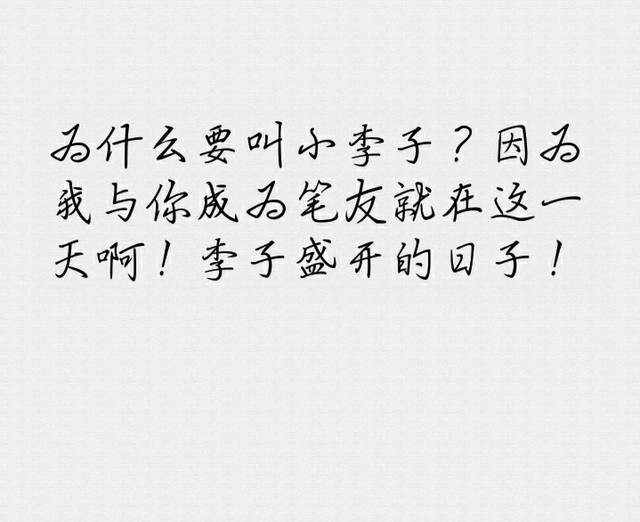 为什么要叫小李子？因为
我与你成为笔友就在这一
天啊！李子盛开的日子！